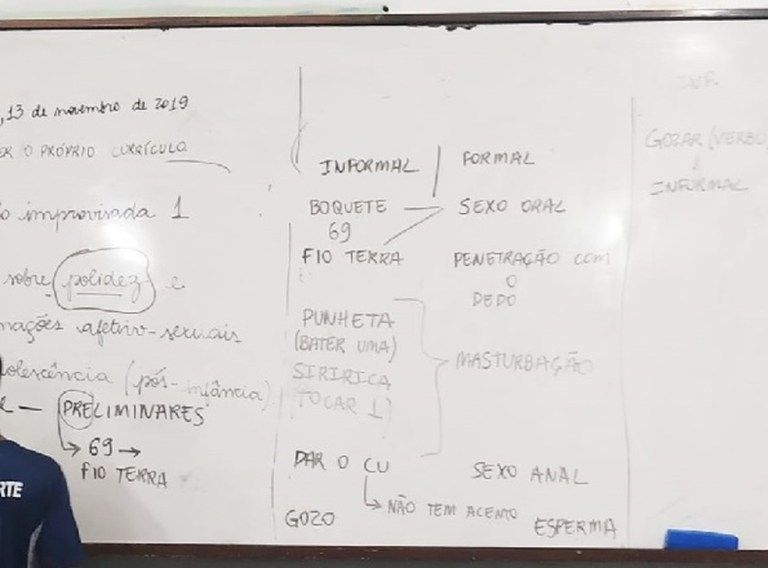 , 13 de novembro de 2019
ER O PRÓPRIO CURRÍCULO
improvisada 1
sobre polidez e
mações afetivo-sexuais
olescência (pós-infância)
e — PRELIMINARES
↳ 69 →
FIO TERRA
RTE
INFORMAL | FORMAL
BOQUETE — SEXO ORAL
69
FIO TERRA PENETRAÇÃO COM
O
DEDO
PUNHETA
(BATER UMA)
MASTURBAÇÃO
SIRIRICA
(TOCAR 1)
DAR O CU SEXO ANAL
↳ NÃO TEM ACENTO
GOZO ESPERMA
INF.
GOZAR (VERBO)
↓
INFORMAL